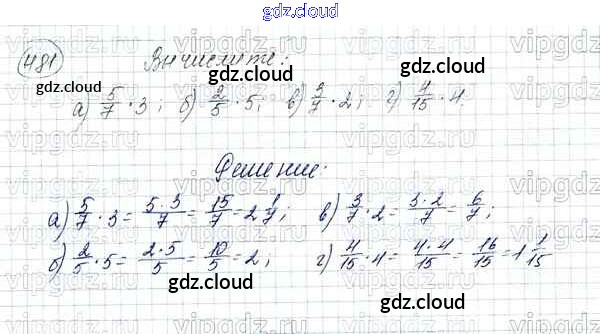 gdz.cloud
481 Вычислите:
gdz.cloud gdz.cloud gdz.cloud
а) 5/7 · 3; б) 2/5 · 5; в) 3/7 · 2; г) 4/15 · 4.
Решение:
а) 5/7 · 3 = 5·3/7 = 15/7 = 2 1/7; в) 3/7 · 2 = 3·2/7 = 6/7;
б) 2/5 · 5 = 2·5/5 = 10/5 = 2; г) 4/15 · 4 = 4·4/15 = 16/15 = 1 1/15
gdz.cloud gdz.cloud